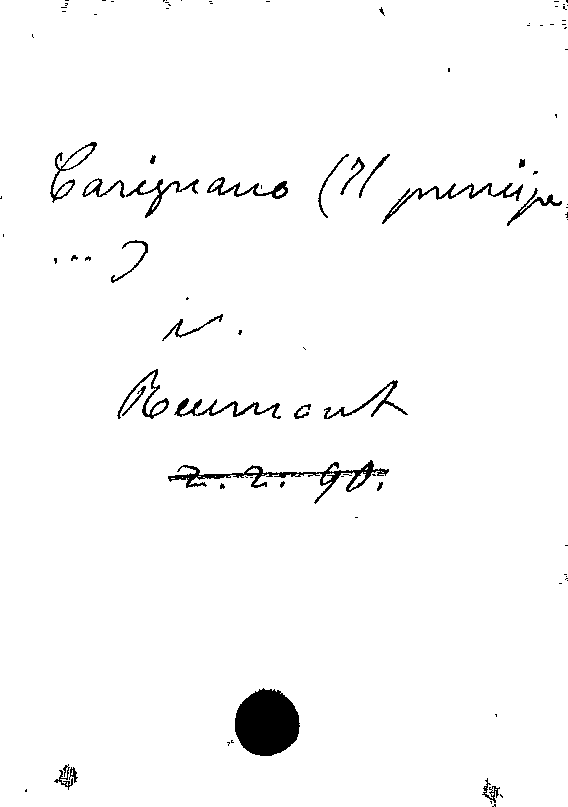 Carignano (Il principe
...)
v.
Reumont
2. 2. 90.